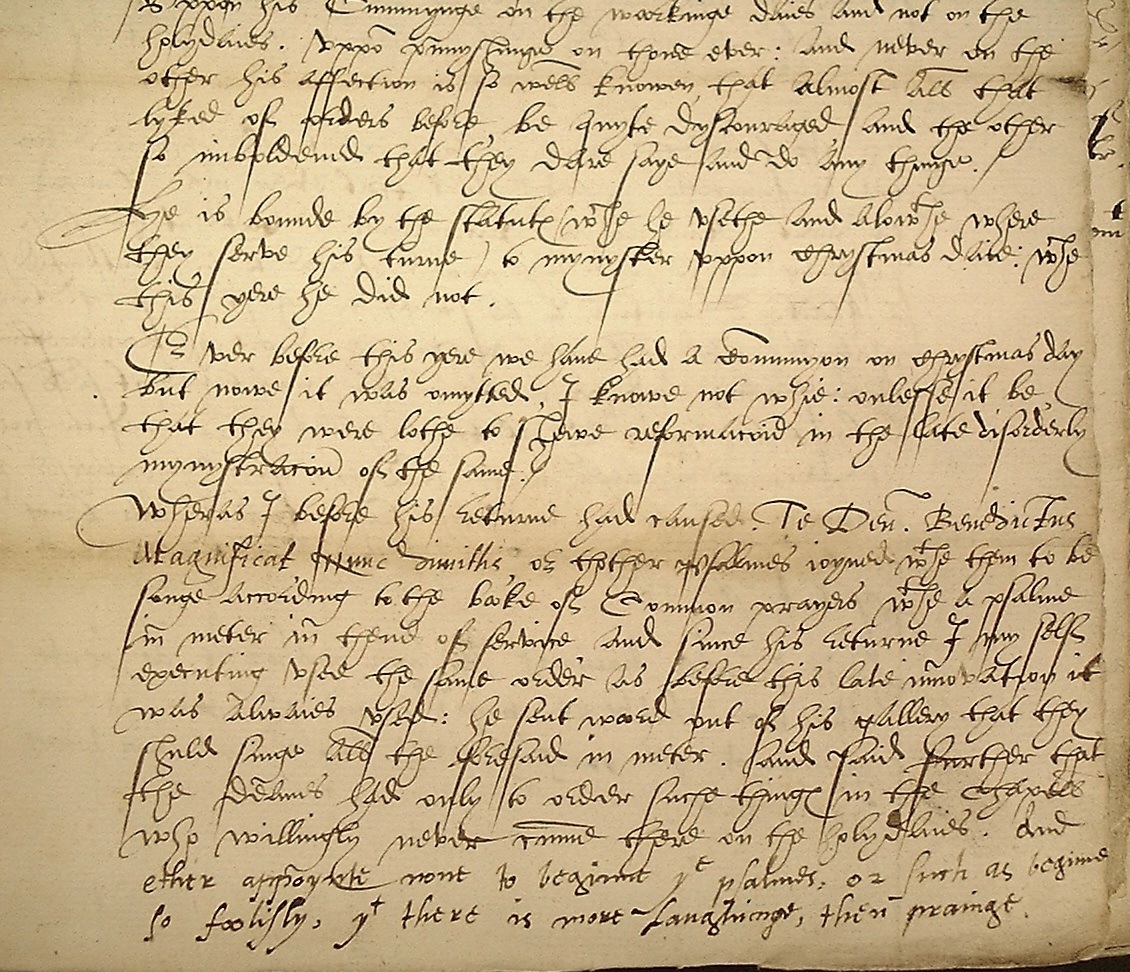 uppon his Cummynge on the workinge daies and not on the
holydaies. Uppō pūnyshinge on thone ever: and never on the
other his affection is so well knowen, that almost all that
lyked of orders before, be quyte dyscouraged and the other
so imboldened that they dare saye and do any thinge.
He is bounde by the statut (wche he usethe and alowthe where
they serve his turne) to mynyster uppon Chrystmas daie: wche
this yere he did not.
Ever before this yere we have had a Communyon on Chrystmas day
but nowe it was omytted, I knowe not whie: onlesse it be
that they were lothe to shewe reformacōn in the late disorderly
mynystracōn of the same.
Wheras I before his returne had caused. Te Deū. Benedictus
Magnificat Nunc dimittis or thother psalmes ioyned wthe them to be
songe according to the boke of Common prayers wthe a psalme
in meter in thend of service and since his returne I my self
executing used the same order as before this late innovation it
was alwaies used: he sent word out of his gallery that they
shuld singe all the foresaid in meter. And said further that
the deanes had only to order suche thing in the Chapell
who willingly never cūme there on the holydaies. And
ether appoynte none to beginne ye psalmes, or such as beginne
so foolisly, yt there is more laughinge, then prainge.